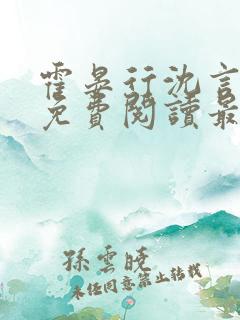 霍晏行沈言
免費閱讀最
孫雲曉
未經同意禁止轉載